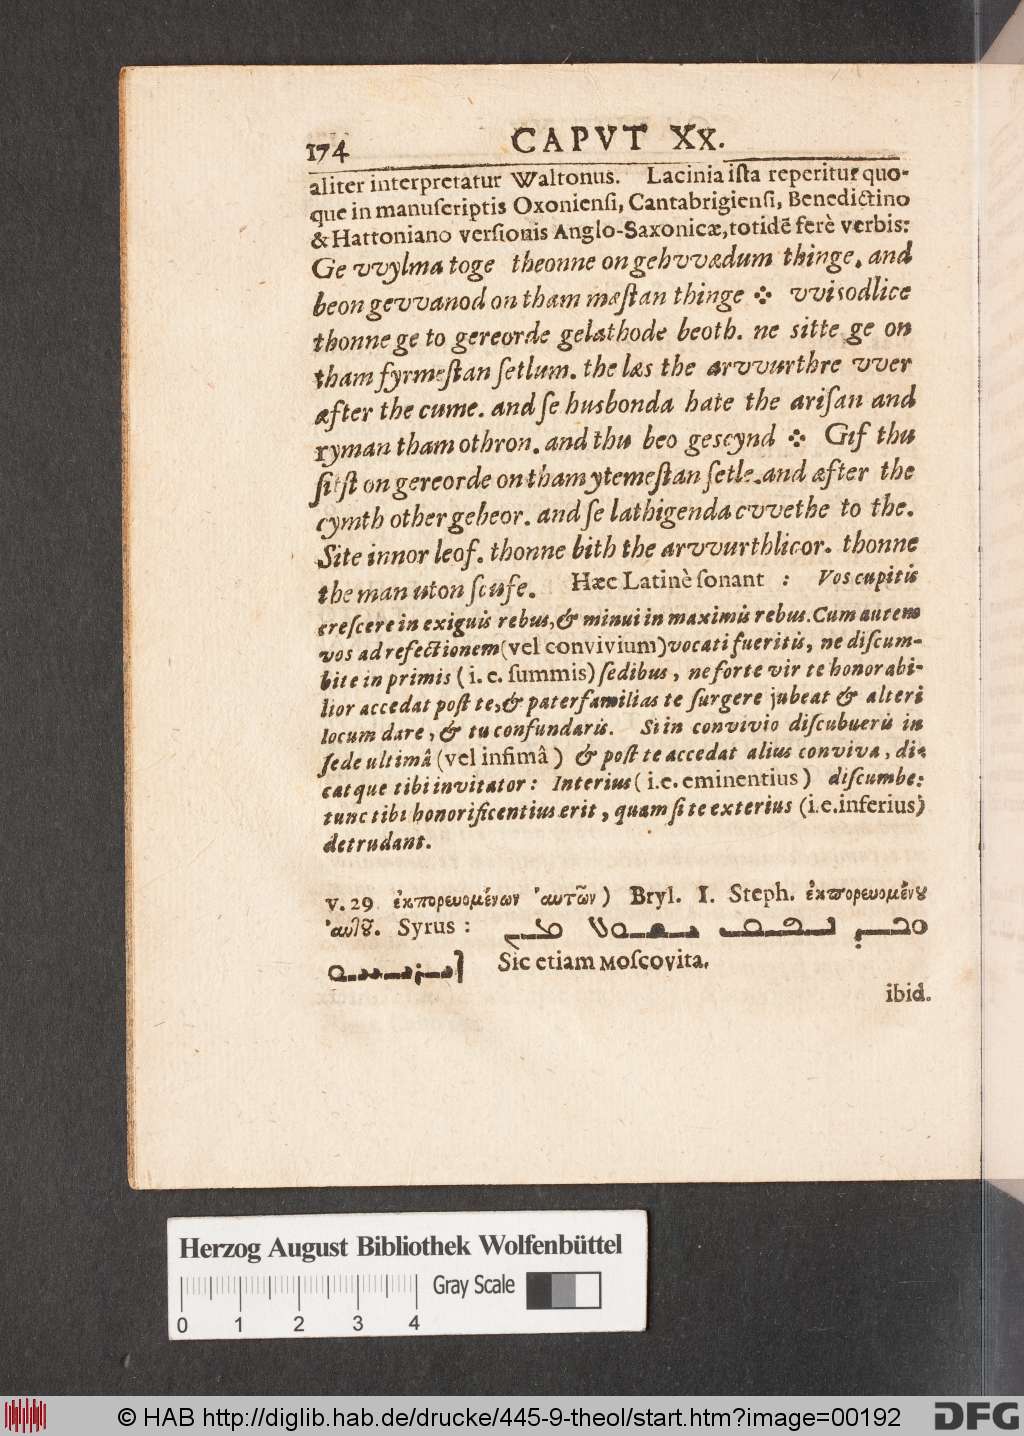 174 CAPVT XX.
aliter interpretatur Waltonus. Lacinia iſta reperitur quo-
que in manuſcriptis Oxonienſi, Cantabrigienſi, Benedictino
& Hattoniano verſionis Anglo-Saxonicæ, totidē ferè verbis:
Ge vvylma toge theonne on gehvvædum thinge. and
beon gevvanod on tham mæſtan thinge ⁘ vvisodlice
thonne ge to gereorde gelathode beoth. ne sitte ge on
tham fyrmeſtan ſetlum. the læs the arvvurthre vver
æfter the cume. and ſe husbonda hate the ariſan and
ryman tham othron. and thu beo gescynd ⁘ Gif thu
ſitſt on gereorde on tham ytemeſtan ſetle. and æfter the
cymth other gebeor. and ſe lathigenda cvvethe to the.
Site innor leof. thonne bith the arvvurthlicor. thonne
the man uton ſcufe. Hæc Latinè ſonant : Vos cupitis
creſcere in exiguis rebus, & minui in maximis rebus. Cum autem
vos ad refectionem (vel convivium) vocati fueritis, ne diſcum-
bite in primis (i. e. ſummis) ſedibus, ne forte vir te honorabi-
lior accedat poſt te, & paterfamilias te ſurgere jubeat & alteri
locum dare, & tu confundaris. Si in convivio diſcubueris in
ſede ultimâ (vel infimâ) & poſt te accedat alius conviva, di-
cat que tibi invitator: Interius (i.e. eminentius) diſcumbe:
tunc tibi honorificentius erit, quam ſi te exterius (i.e. inferius)
detrudant.
v. 29 ἐκπορευομένων ἀυτῶν) Bryl. I. Steph. ἐκπορευομένȣ
ἀυτȣ͂. Syrus :
Sic etiam Moſcovita.
ibid.
Herzog August Bibliothek Wolfenbüttel
Gray Scale
0 1 2 3 4
© HAB http://diglib.hab.de/drucke/445-9-theol/start.htm?image=00192 DFG